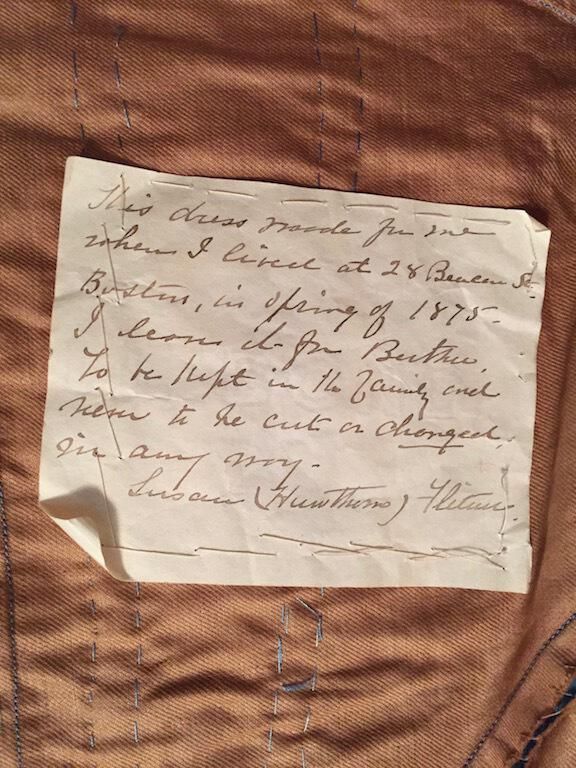 This dress made for me
when I lived at 28 Beacon St.
Boston, in Spring of 1875.
I leave it for Bertha,
to be kept in the family and
never to be cut or changed,
in any way.
Susan (Hawthorne)